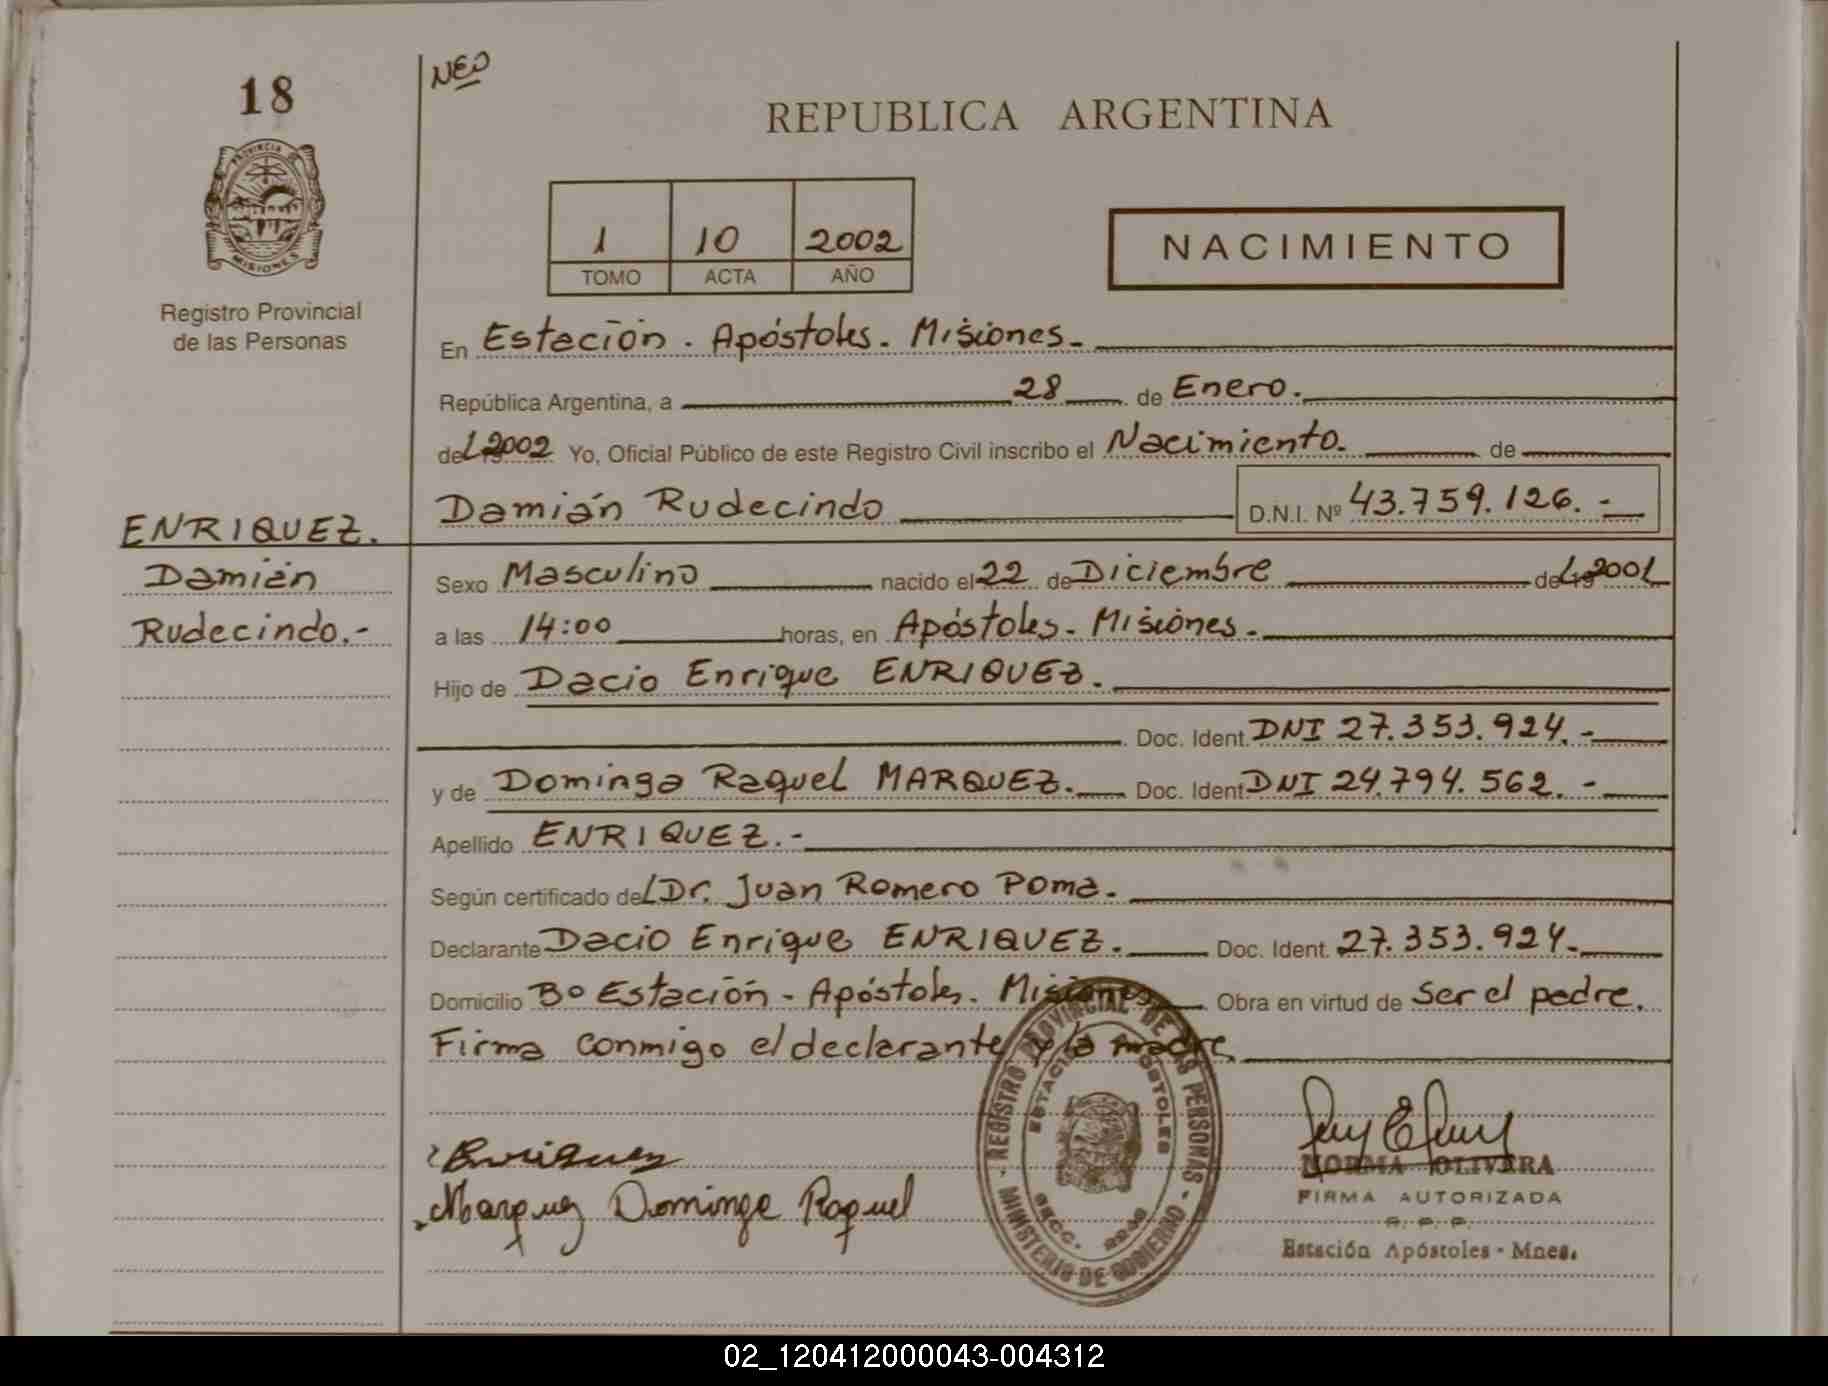 18
NEO
REPUBLICA ARGENTINA
PROVINCIA DE
MISIONES
Registro Provincial
de las Personas
1 10 2002
TOMO ACTA AÑO
NACIMIENTO
En Estación. Apóstoles. Misiones.
República Argentina, a 28 de Enero.
del 2002 Yo, Oficial Público de este Registro Civil inscribo el Nacimiento. de
Damián Rudecindo D.N.I. Nº 43.759.126.-
ENRIQUEZ.
Damián
Rudecindo.-
Sexo Masculino nacido el 22 de Diciembre del 2001
a las 14:00 horas, en Apóstoles. Misiones.
Hijo de Dacio Enrique ENRIQUEZ.
Doc. Ident. DNI 27.353.924.-
y de Dominga Raquel MARQUEZ. Doc. Ident DNI 24.794.562.-
Apellido ENRIQUEZ.-
Según certificado del Dr. Juan Romero Poma.
Declarante Dacio Enrique ENRIQUEZ. Doc. Ident. 27.353.924.
Domicilio Bº Estación - Apóstoles. Misiones Obra en virtud de ser el padre.
Firma conmigo el declarante y la madre.
REGISTRO PROVINCIAL DE LAS PERSONAS - MINISTERIO DE GOBIERNO -
ESTACION APOSTOLES
SECC.
Enriquez
Marquez Dominga Raquel
NORMA OLIVERA
FIRMA AUTORIZADA
Estación Apóstoles - Mnes.
02_120412000043-004312